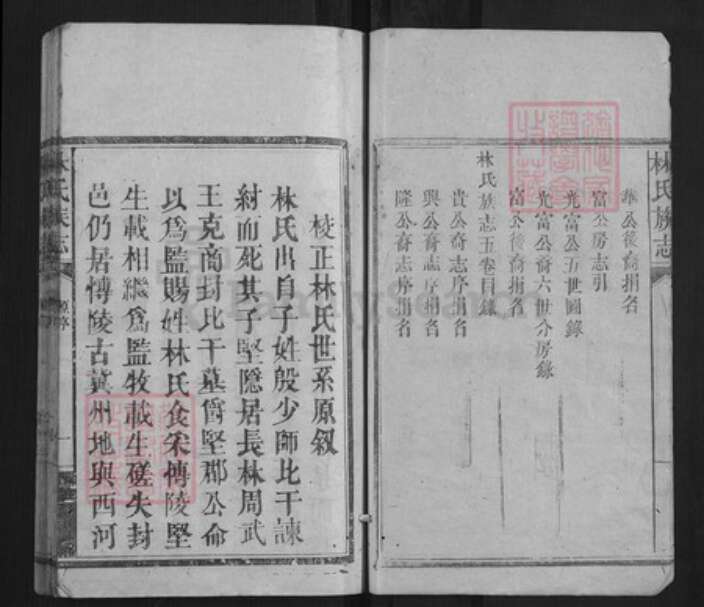 林氏族志
華公後裔捐名
富公房志引
光富公五世圖錄
光富公裔六世分房錄
富公後裔捐名
林氏族志五卷目錄
貴公裔志序捐名
興公裔志序捐名
隆公裔志序捐名
校正林氏世系原叙
林氏出自子姓殷少師比干諫
紂而死其子堅隱居長林周武
王克商封比干墓爵堅郡公命
以爲監賜姓林氏食采愽陵堅
生載相繼爲監牧載生磋失封
邑仍居愽陵古冀州地與西河
林氏族志
原序
一